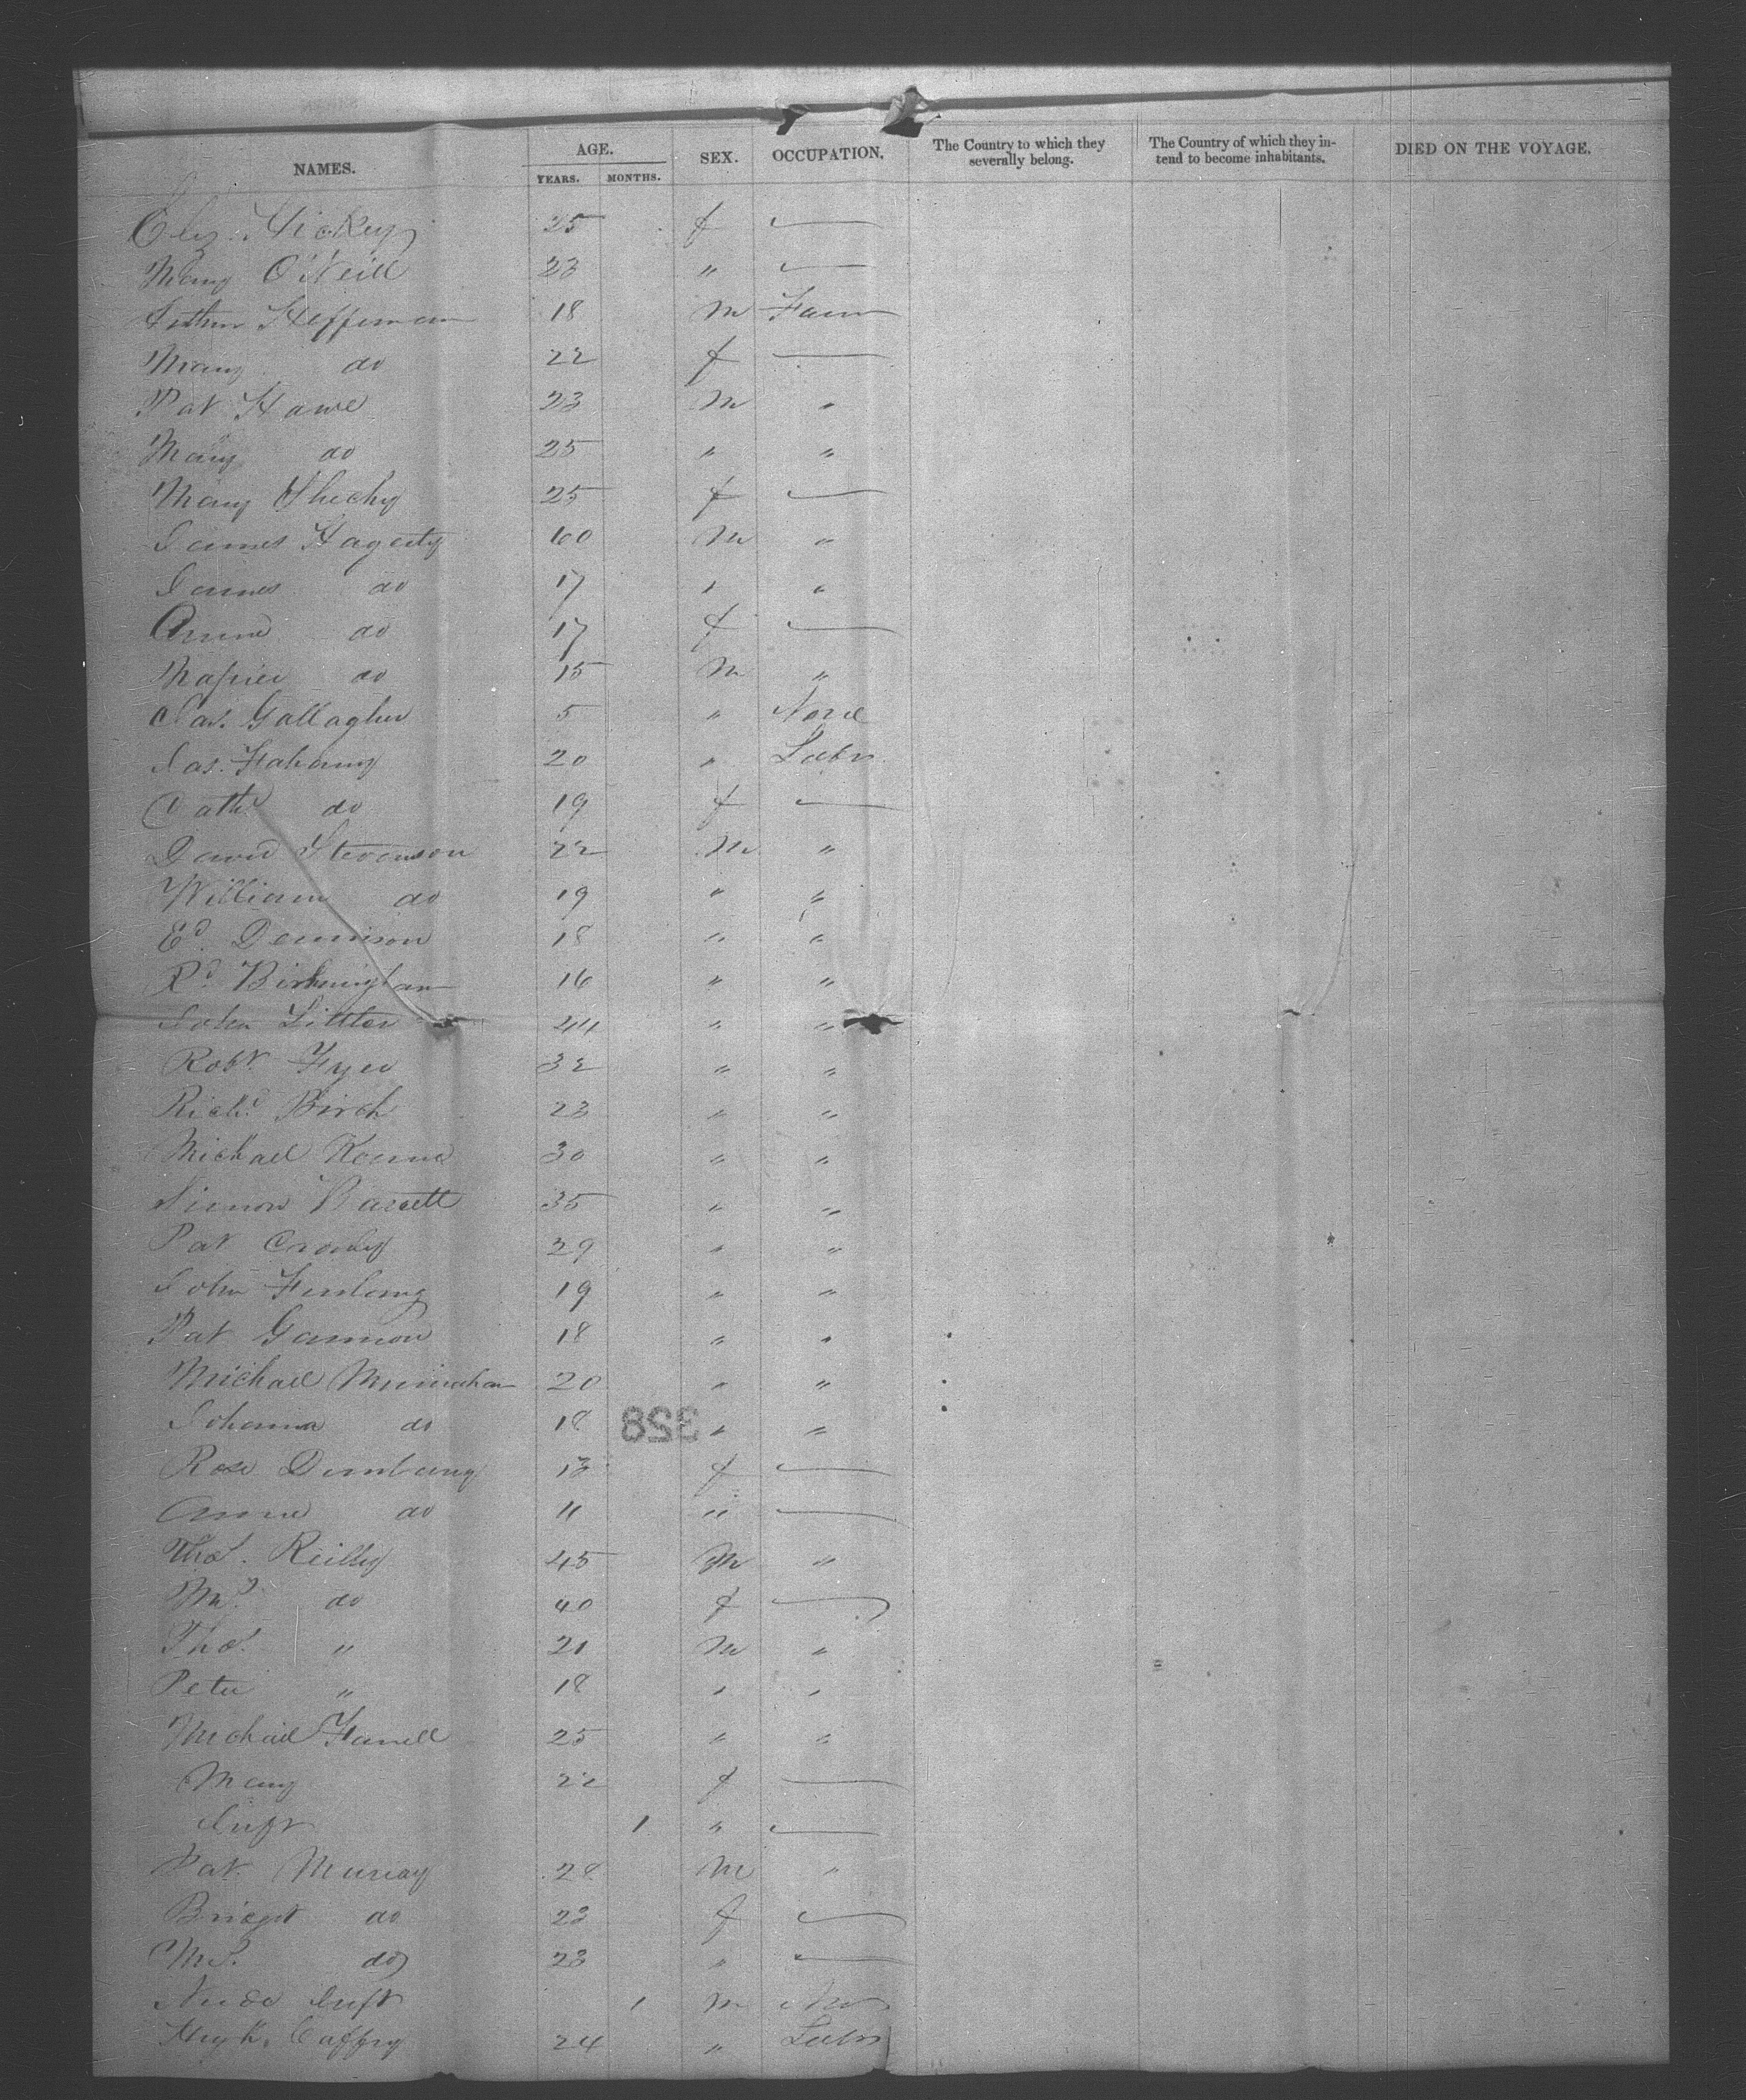 NAMES. AGE. YEARS. MONTHS. SEX. OCCUPATION. The Country to which they severally belong. The Country of which they intend to become inhabitants. DIED ON THE VOYAGE.
Eliz. Hickey 25 f —
Mary O'Neill 23 " —
Heffernan 18 M Farm
Mary do 22 f —
Pat Hawe 23 M "
Mary do 25 " "
Mary Sheehy 25 f —
James Hagerty 60 M "
James do 17 " "
Anne do 17 f —
do 15 M "
Gallagher 5 " None
Jas. Fahaney 20 " Labr
Cath do 19 f —
David Stevenson 22 M "
William do 19 " "
Ed Dennison 18 " "
Rd Birkmingham 16 " "
John Littler 44 " "
Robt Fyer 32 " "
Richd Birch 23 " "
Michael Keene 30 " "
Simon Barrett 35 " "
Pat Crowley 29 " "
John Furlong 19 " "
Pat Gannon 18 " "
Michael 20 " "
Johanna do 18 " "
328
Rose 13 f —
Anne do 11 " —
Thos. Reilly 45 M "
Mrs do 40 f —
Thos. " 21 M "
Peter " 18 " "
Michael Farrell 25 " "
Mary 22 f —
Inft 1 " —
Pat. Murray 28 M "
Bridget do 23 f —
Ms. do 23 " —
Inft 1 M
Hugh Caffry 24 " Labr